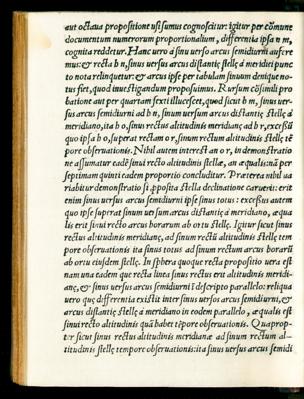 aut octaua propositione usi sumus cognoscitur: igitur per cōmune
documentum numerorum proportionalium, differentia ipsa n m,
cognita reddetur. Hanc uero à sinu uerso arcus semidiurni aufere
mus: & recta b n, sinus uersus arcus distantię stellę à meridiei punc
to nota relinquetur: & arcus ipse per tabulam sinuum denique no-
tus fiet, quod inuestigandum proposuimus. Rursum cōsimili pro
batione aut per quartam sexti illucescet, quod sicut b m, sinus uer-
sus arcus semidiurni ad b n, sinum uersum arcus distantię stellę à
meridiano, ita b o, sinus rectus altitudinis meridianę, ad b r, excessū
quo ipsa b o, superat rectam o r, sinum rectum altitudinis stellę tē
pore obseruationis. Nihil autem interest an o r, in demonstratio
ne assumatur eadē sinui recto altitudinis stellæ, an æqualis: nā per
septimam quinti eadem proportio concluditur. Præterea nihil ua
riabit demonstratio si apposita stella declinatione caruerit: erit
enim sinus uersus arcus semidiurni ipse sinus totus: excessus autem
quo ipse superat sinum uersum arcus distantiæ à meridiano, æqua
lis erit sinui recto arcus horarum ab ortu stellę. Igitur sicut sinus
rectus altitudinis meridianæ, ad sinum rectū altitudinis stellę tem
pore obseruationis ita sinus totus ad sinum rectum arcus horarū
ab ortu eiusdem stellę. In sphera quoque recta propositio uera est
nam una eadem que recta linea sinus rectus erit altitudinis meridi-
anę, & sinus uersus arcus semidiurni ī descripto parallelo: reliqua
uero quę differentia existit inter sinus uersos arcus semidiurni, &
arcus distantię stellę à meridiano in eodem parallelo, æqualis est
sinui recto altitudinis quā habet tēpore obseruationis. Quaprop-
ter sicut sinus rectus altitudinis meridianæ ad sinum rectum al-
titudinis stellę tempore obseruationis: ita sinus uersus arcus semidi